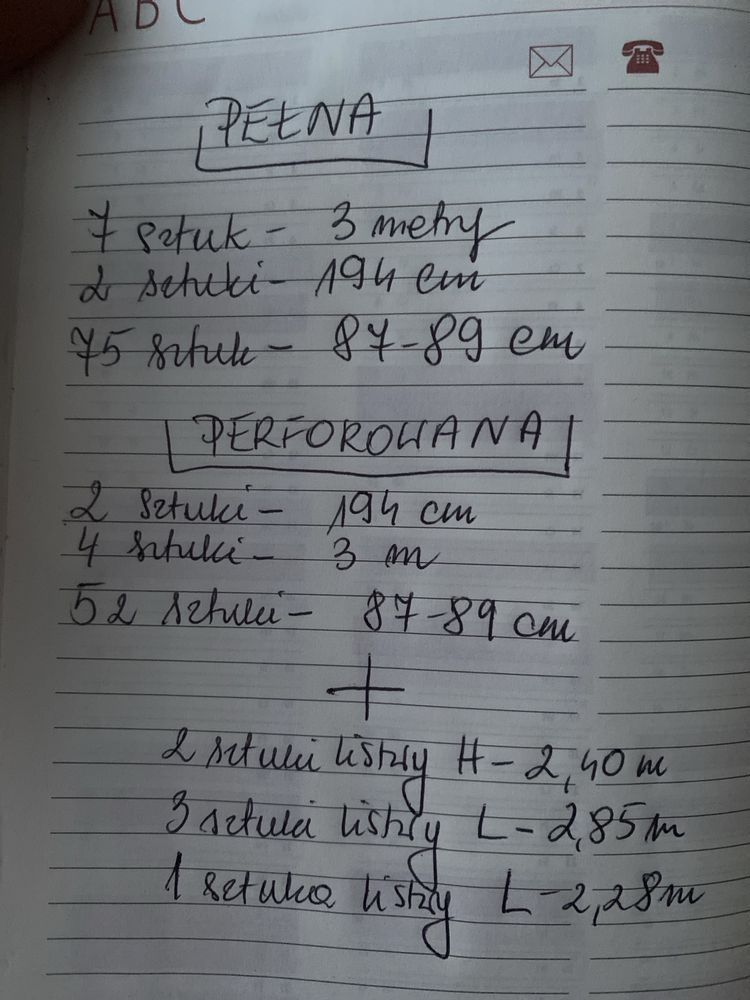 ABC
PEŁNA
7 sztuk - 3 metry
2 sztuki - 194 cm
75 sztuk - 87-89 cm
PERFOROWANA
2 sztuki - 194 cm
4 sztuki - 3 m
52 sztuki - 87-89 cm
+
2 sztuki listwy H - 2,40 m
3 sztuki listwy L - 2,85 m
1 sztuka listwy L - 2,28 m